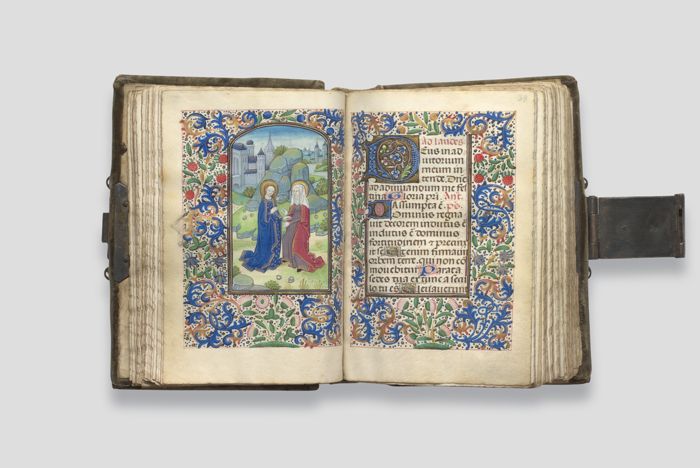 Ad laudes
Eus in ad
iutorium
meum in
tende. Dne
ad adiuuandum me fes
tina Gloria pri. Ant.
Assumpta ē. ps.
Ominus regna
uit decorem indutus ē
indutus ē dominus
fortitudinem et precinxit
it se Etenim firmauit
orbem terre. qui non com
mouebitur Parata
sedes tua ex tunc a secu
lo tu es Eleuauerunt